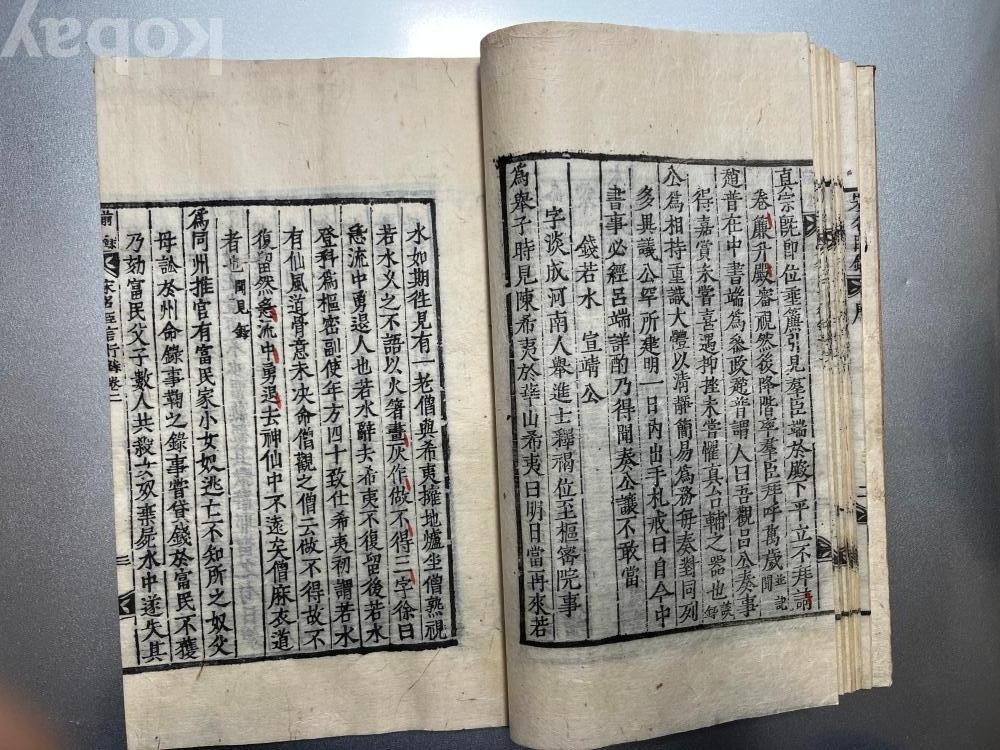 kobay
真宗旣即位垂簾引見羣臣端於殿下平立不拜請
卷簾升殿審視然後降階率羣臣拜呼萬歲 並記聞
趙普在中書端爲參政趙普謂人曰吾觀呂公奏事
得嘉賞未嘗喜遇抑挫未嘗懼真台輔之器也 談錄
公爲相持重識大體以清靜簡易爲務每奏對同列
多異議公罕所建明一日內出手札戒曰自今中
書事必經呂端詳酌乃得聞奏公讓不敢當
錢若水 宣靖公
字淡成河南人舉進士釋褐位至樞密院事
爲舉子時見陳希夷於華山希夷曰明日當再來若
水如期往見有一老僧與希夷擁地爐坐僧熟視
若水乂之不語以火箸畫灰作做不得三字徐曰
急流中勇退人也若水辭去希夷不復留後若水
登科爲樞密副使年方四十致仕希夷初謂若水
有仙風道骨意未决命僧觀之僧云做不得故不
復留然急流中勇退去神仙中不遠矣僧麻衣道
者也 聞見錄
爲同州推官有富民家小女奴逃亡不知所之奴父
母訟於州命錄事鞫之錄事嘗貸錢於富民不獲
乃劾富民父子數人共殺女奴棄屍水中遂失其
前錄 宋名臣言行錄卷二